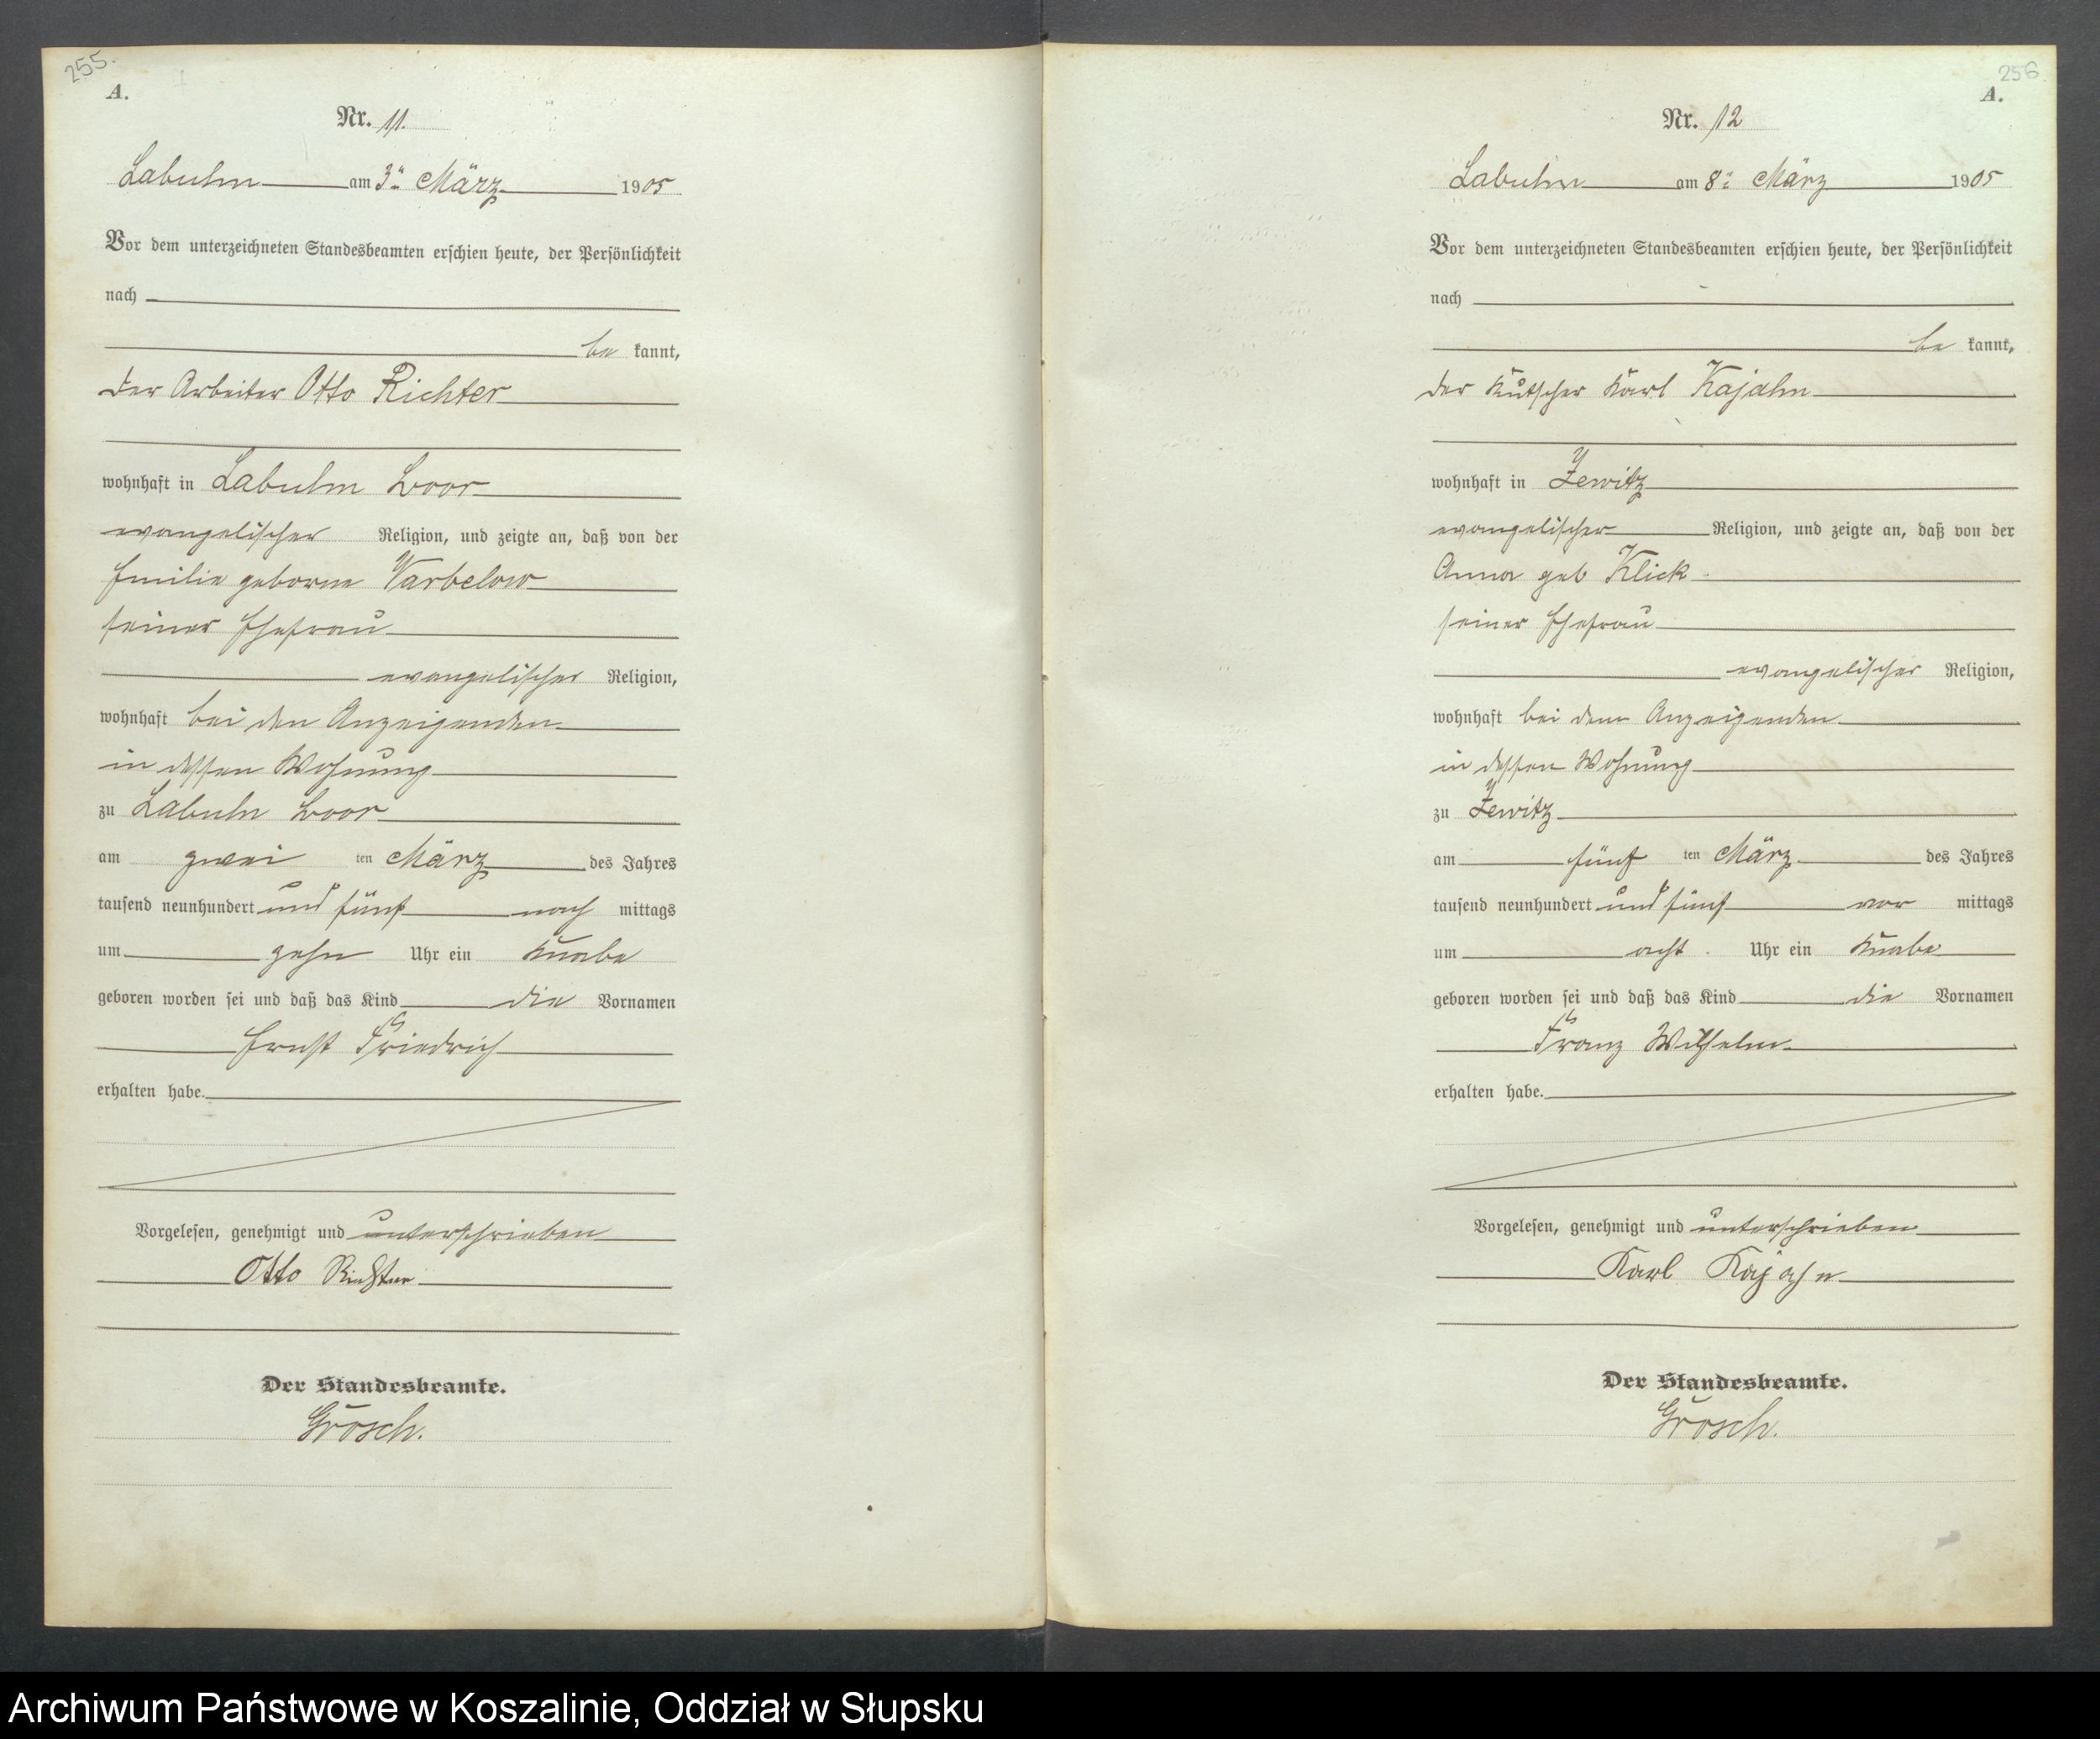 255.
A.
Nr. 11.
Labuhn am 3ten März 1905
Vor dem unterzeichneten Standesbeamten erschien heute, der Persönlichkeit
nach
be kannt,
der Arbeiter Otto Richter
wohnhaft in Labuhn Loor
evangelischer Religion, und zeigte an, daß von der
Emilie geborene Varbelow
seiner Ehefrau
evangelischer Religion,
wohnhaft bei den Anzeigenden
in dessen Wohnung
zu Labuhn Loor
am zwei ten März des Jahres
tausend neunhundert und fünf nach mittags
um zehn Uhr ein Knabe
geboren worden sei und daß das Kind die Vornamen
Ernst Friedrich
erhalten habe.
Vorgelesen, genehmigt und unterschrieben
Otto Richter
Der Standesbeamte.
Grosch.
256.
A.
Nr. 12
Labuhn am 8ten März 1905
Vor dem unterzeichneten Standesbeamten erschien heute, der Persönlichkeit
nach
be kannt,
der Kutscher Karl Kajahn
wohnhaft in Zewitz
evangelischer Religion, und zeigte an, daß von der
Anna geb Klick
seiner Ehefrau
evangelischer Religion,
wohnhaft bei dem Anzeigenden
in dessen Wohnung
zu Zewitz
am fünf ten März des Jahres
tausend neunhundert und fünf vor mittags
um acht Uhr ein Knabe
geboren worden sei und daß das Kind die Vornamen
Franz Wilhelm
erhalten habe.
Vorgelesen, genehmigt und unterschrieben
Karl Kajahn
Der Standesbeamte.
Grosch.
Archiwum Państwowe w Koszalinie, Oddział w Słupsku